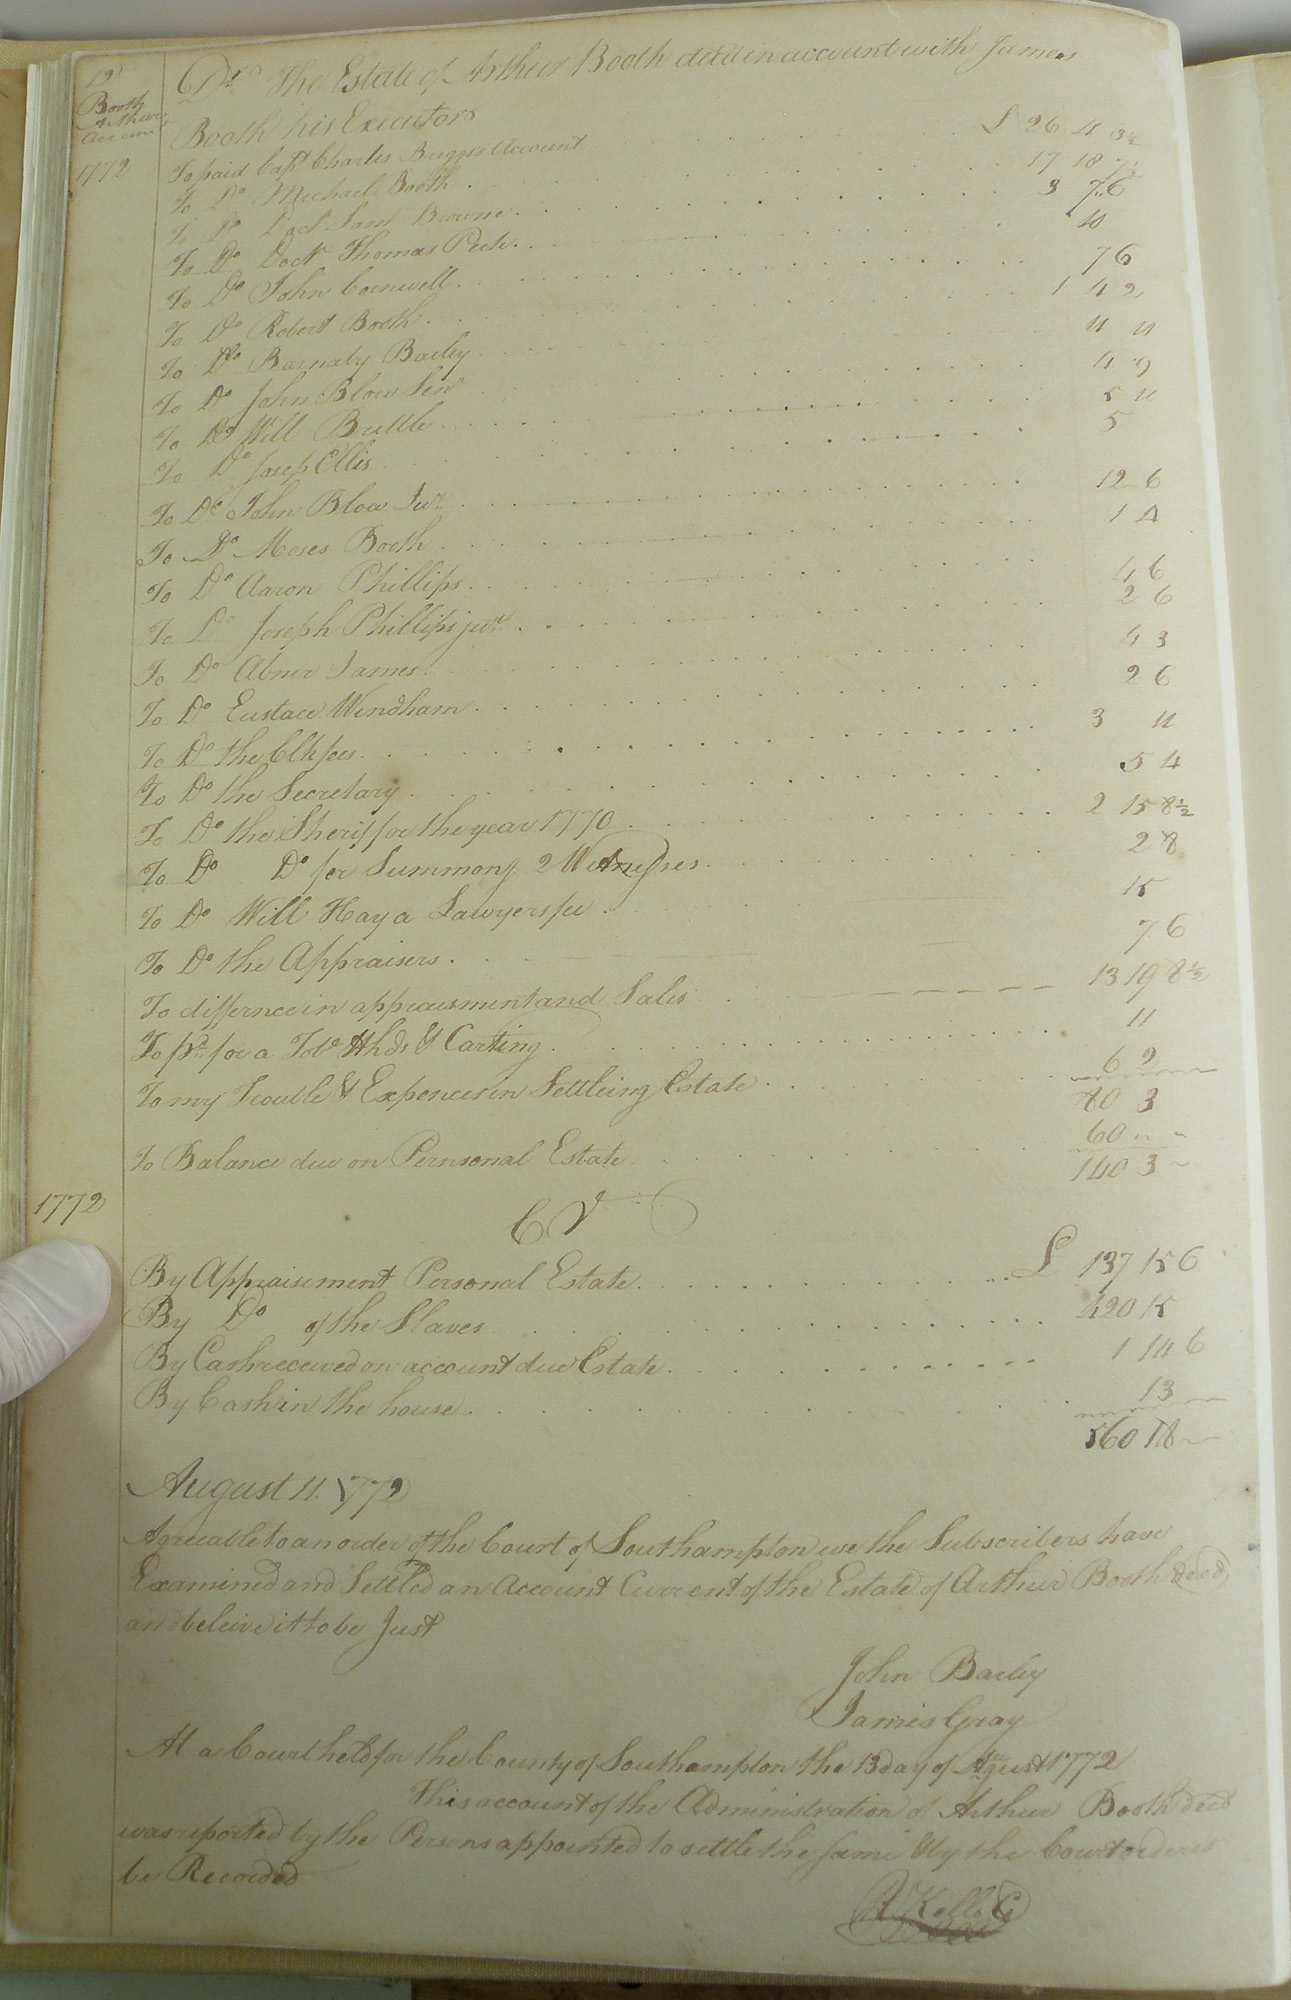 19
Booth
Arthur
Account
Dr The Estate of Arthur Booth decd in account with James
Booth his Executor
1772
To paid Capt Charles Briggs Account £ 26 4
To Do Michael Booth 17 18 7½
To Do Doct Sam Browne 3 7 6
To Do Doctr Thomas Peete 10
To Do John Cornwell 7 6
To Do Robert Booth 1 4 2
To Do Barnaby Bailey 11 11
To Do John Blow Senr 4 9
To Do Will Brittle 5 11
To Do Josep Ellis 5
To Do John Blow Jur 12 6
To Do Moses Booth 1 4
To Do Aaron Phillips 4 6
To Do Joseph Phillips jur 2 6
To Do Abner James 4 3
To Do Eustace Windham 2 6
To Do the Clk fees 3 11
To Do the Secretary 5 4
To Do the Sherif for the year 1770 2 15 8½
To Do Do for Summong 2 Witnesses 2 8
To Do Will Hay a Lawyers fee 15
To Do the Appraisers 7 6
To differnce in appraisment and Sales 13 19 8½
To pd for a Tobo Hhds & Carting 11
To my Trouble & Expences in Settleing Estate 6 2
80 3
To Balance due on Pernsonal Estate 60 " "
140 3 ~
1772
Cr
By Appraisement Personal Estate £ 137 15 6
By Do of the Slaves 420 15
By Cash received on account due Estate 1 14 6
By Cash in the house 13
560 18 ~
August 11. 1772
Agreeable to an order of the Court of Southampton we the Subscribers have
Examined and Settled an Account Current of the Estate of Arthur Booth decd
and beleive it to be Just
John Bailey
James Gray
At a Court held for the County of Southampton the 13 day of August 1772
This account of the Administration of Arthur Booth decd
was reported by the Persons appointed to settle the same & by the Court ordered
be Recorded
R Kello C